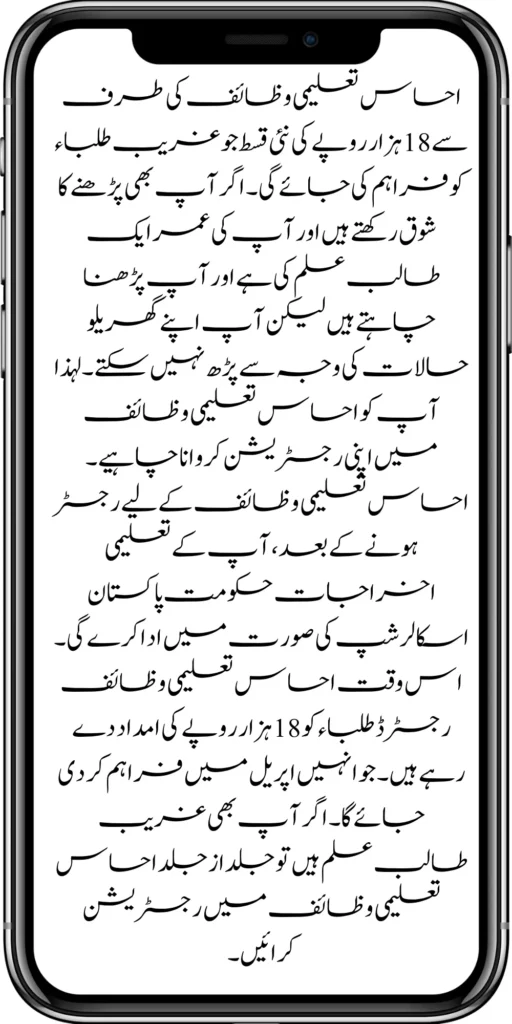 احساس تعلیمی وظائف کی طرف
سے 18 ہزار روپے کی نئی قسط جو غریب طلباء
کو فراہم کی جائے گی۔ اگر آپ بھی پڑھنے کا
شوق رکھتے ہیں اور آپ کی عمر ایک
طالب علم کی ہے اور آپ پڑھنا
چاہتے ہیں لیکن آپ اپنے گھریلو
حالات کی وجہ سے پڑھ نہیں سکتے۔ لہذا
آپ کو احساس تعلیمی وظائف
میں اپنی رجسٹریشن کروانا چاہیے۔
احساس تعلیمی وظائف کے لیے رجسٹر
ہونے کے بعد، آپ کے تعلیمی
اخراجات حکومت پاکستان
اسکالرشپ کی صورت میں ادا کرے گی۔
اس وقت احساس تعلیمی وظائف
رجسٹرڈ طلباء کو 18 ہزار روپے کی امداد دے
رہے ہیں۔ جو انہیں اپریل میں فراہم کر دی
جائے گا۔ اگر آپ بھی غریب
طالب علم ہیں تو جلد از جلد احساس
تعلیمی وظائف میں رجسٹریشن
کرائیں۔